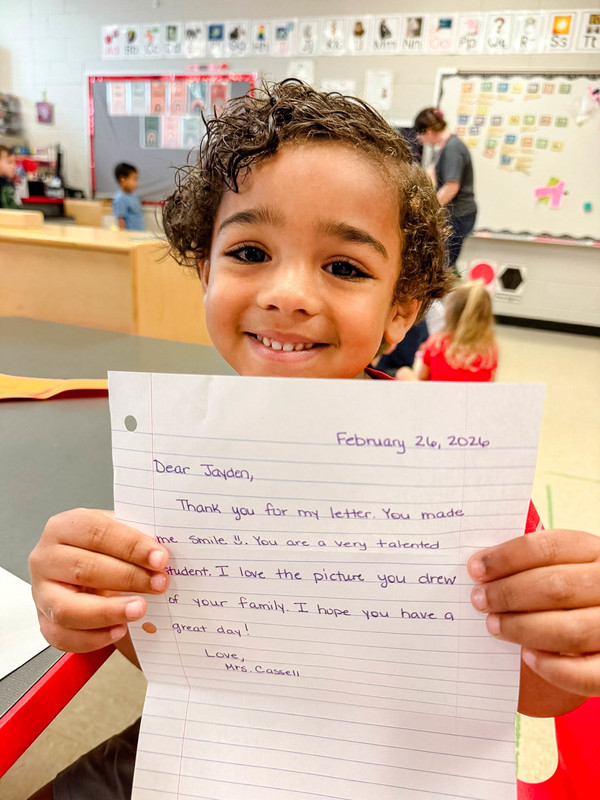 Aa Bb Cc Dd Ee Ff Gg Hh Ii Jj Kk Ll Mm Nn Oo Pp Qq Rr Ss Tt
February 26, 2026
Dear Jayden,
Thank you for my letter. You made
me smile. You are a very talented
student. I love the picture you drew
of your family. I hope you have a
great day!
Love,
Mrs. Cassell